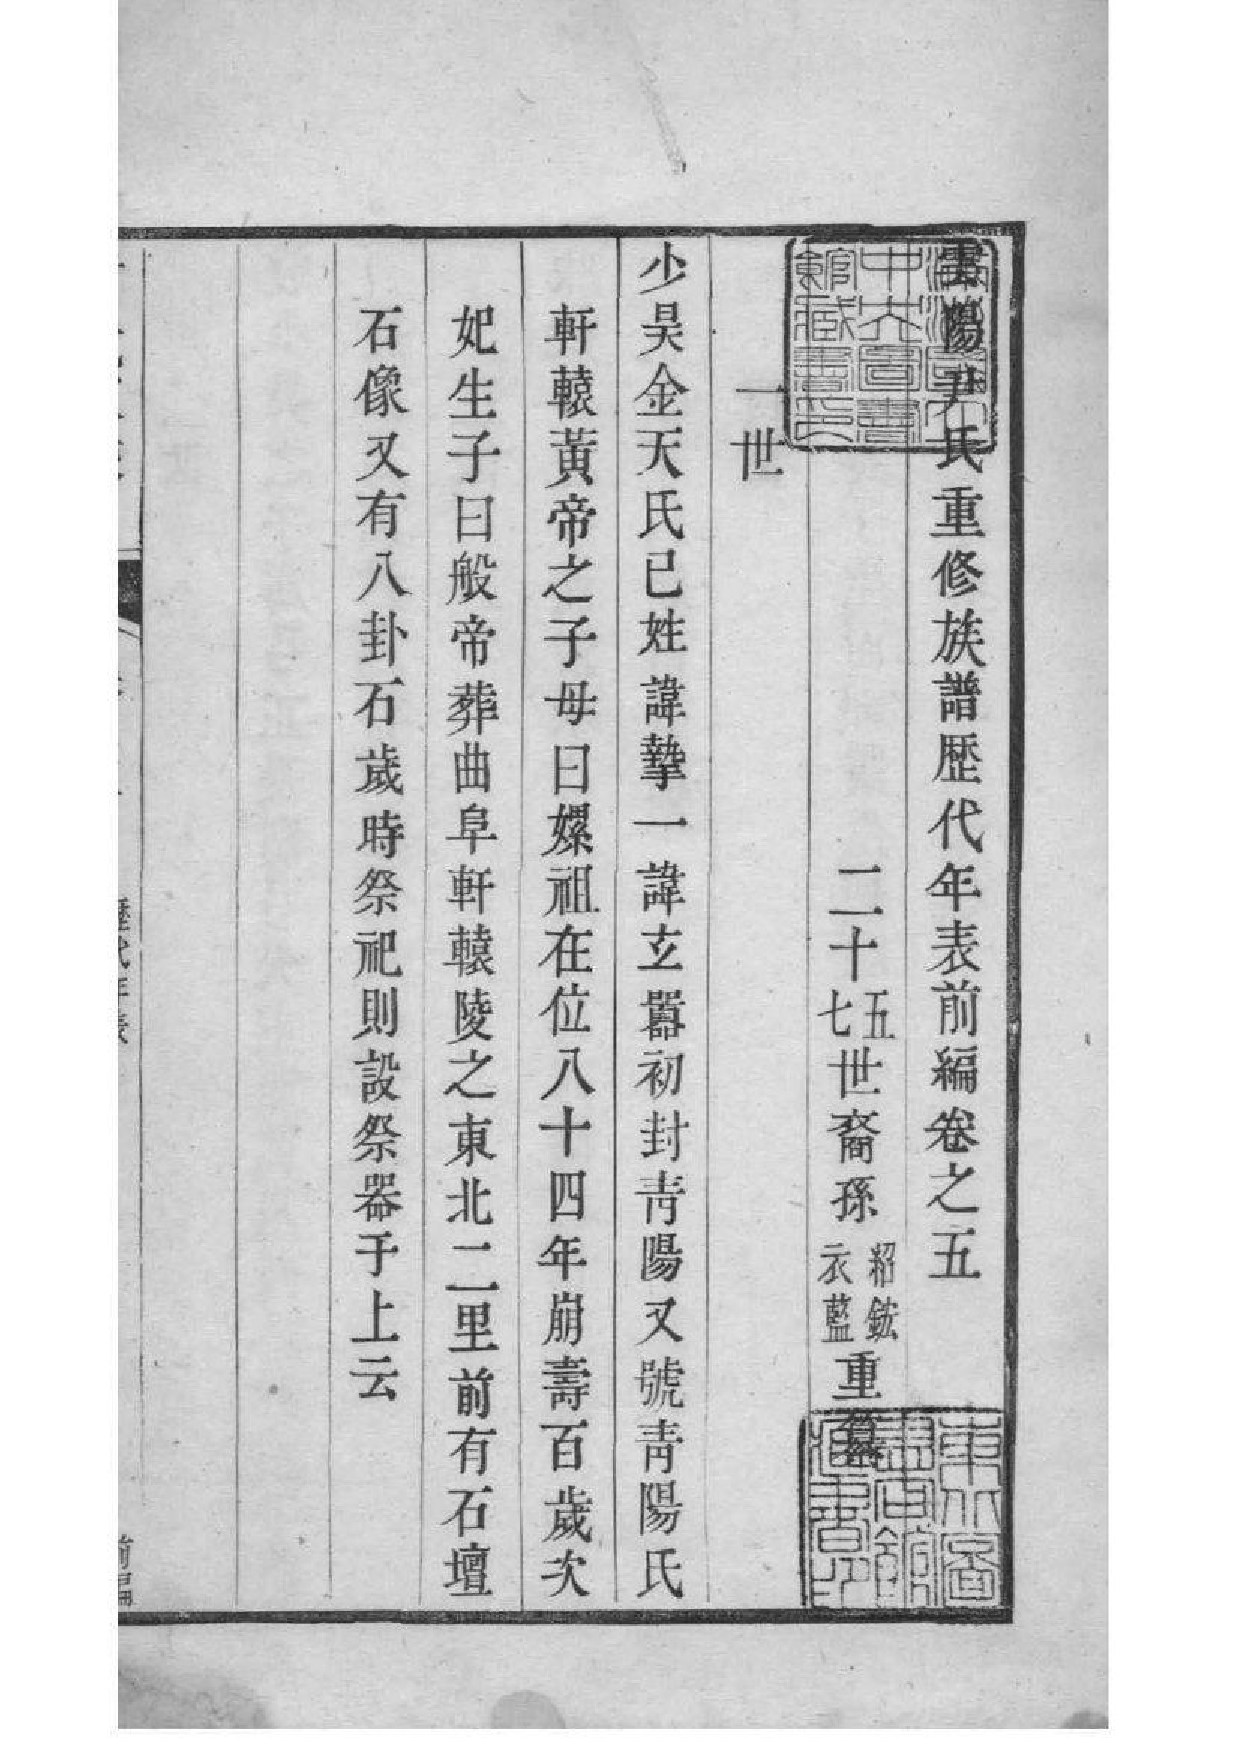 雲陽尹氏重修族譜歷代年表前編卷之五
二十五七世裔孫紹鋐衣藍重纂
一世
少昊金天氏已姓諱摯一諱玄囂初封靑陽又號靑陽氏
軒轅黃帝之子母曰嫘祖在位八十四年崩壽百歲次
妃生子曰般帝葬曲阜軒轅陵之東北二里前有石壇
石像又有八卦石歲時祭祀則設祭器于上云
歷代年表
前編